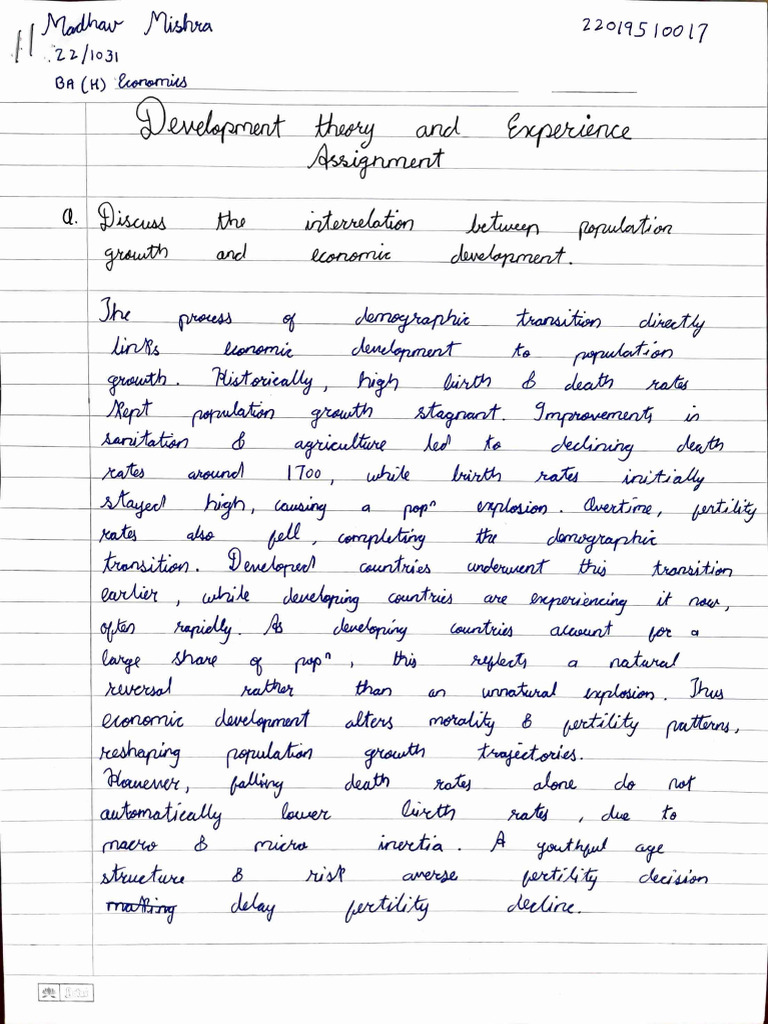 Madhav Mishra
22019510017
22/1031
BA (H) Economics
Development theory and Experience
Assignment
Q. Discuss the interrelation between population
growth and economic development.
The process of demographic transition directly
links economic development to population
growth. Historically, high birth & death rates
kept population growth stagnant. Improvements in
sanitation & agriculture led to declining death
rates around 1700, while birth rates initially
stayed high, causing a popⁿ explosion. Overtime, fertility
rates also fell, completing the demographic
transition. Developed countries underwent this transition
earlier, while developing countries are experiencing it now,
often rapidly. As developing countries account for a
large share of popⁿ, this reflects a natural
reversal rather than an unnatural explosion. Thus
economic development alters morality & fertility patterns,
reshaping population growth trajectories.
However, falling death rates alone do not
automatically lower birth rates, due to
macro & micro inertia. A youthful age
structure & risk averse fertility decision
making delay fertility decline.